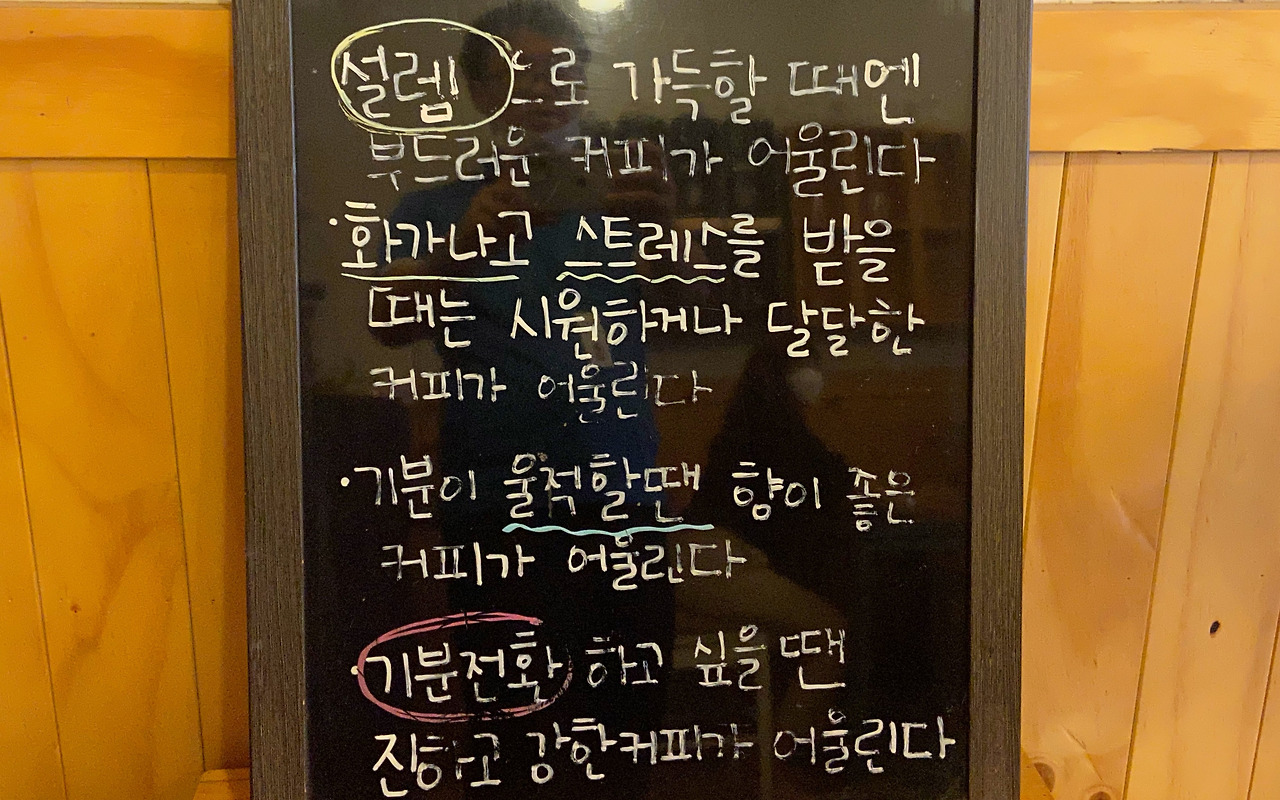 ·설렘으로 가득할 때엔
부드러운 커피가 어울린다
·화가나고 스트레스를 받을
때는 시원하거나 달달한
커피가 어울린다
·기분이 울적할땐 향이 좋은
커피가 어울린다
·기분전환 하고 싶을 땐
진하고 강한커피가 어울린다